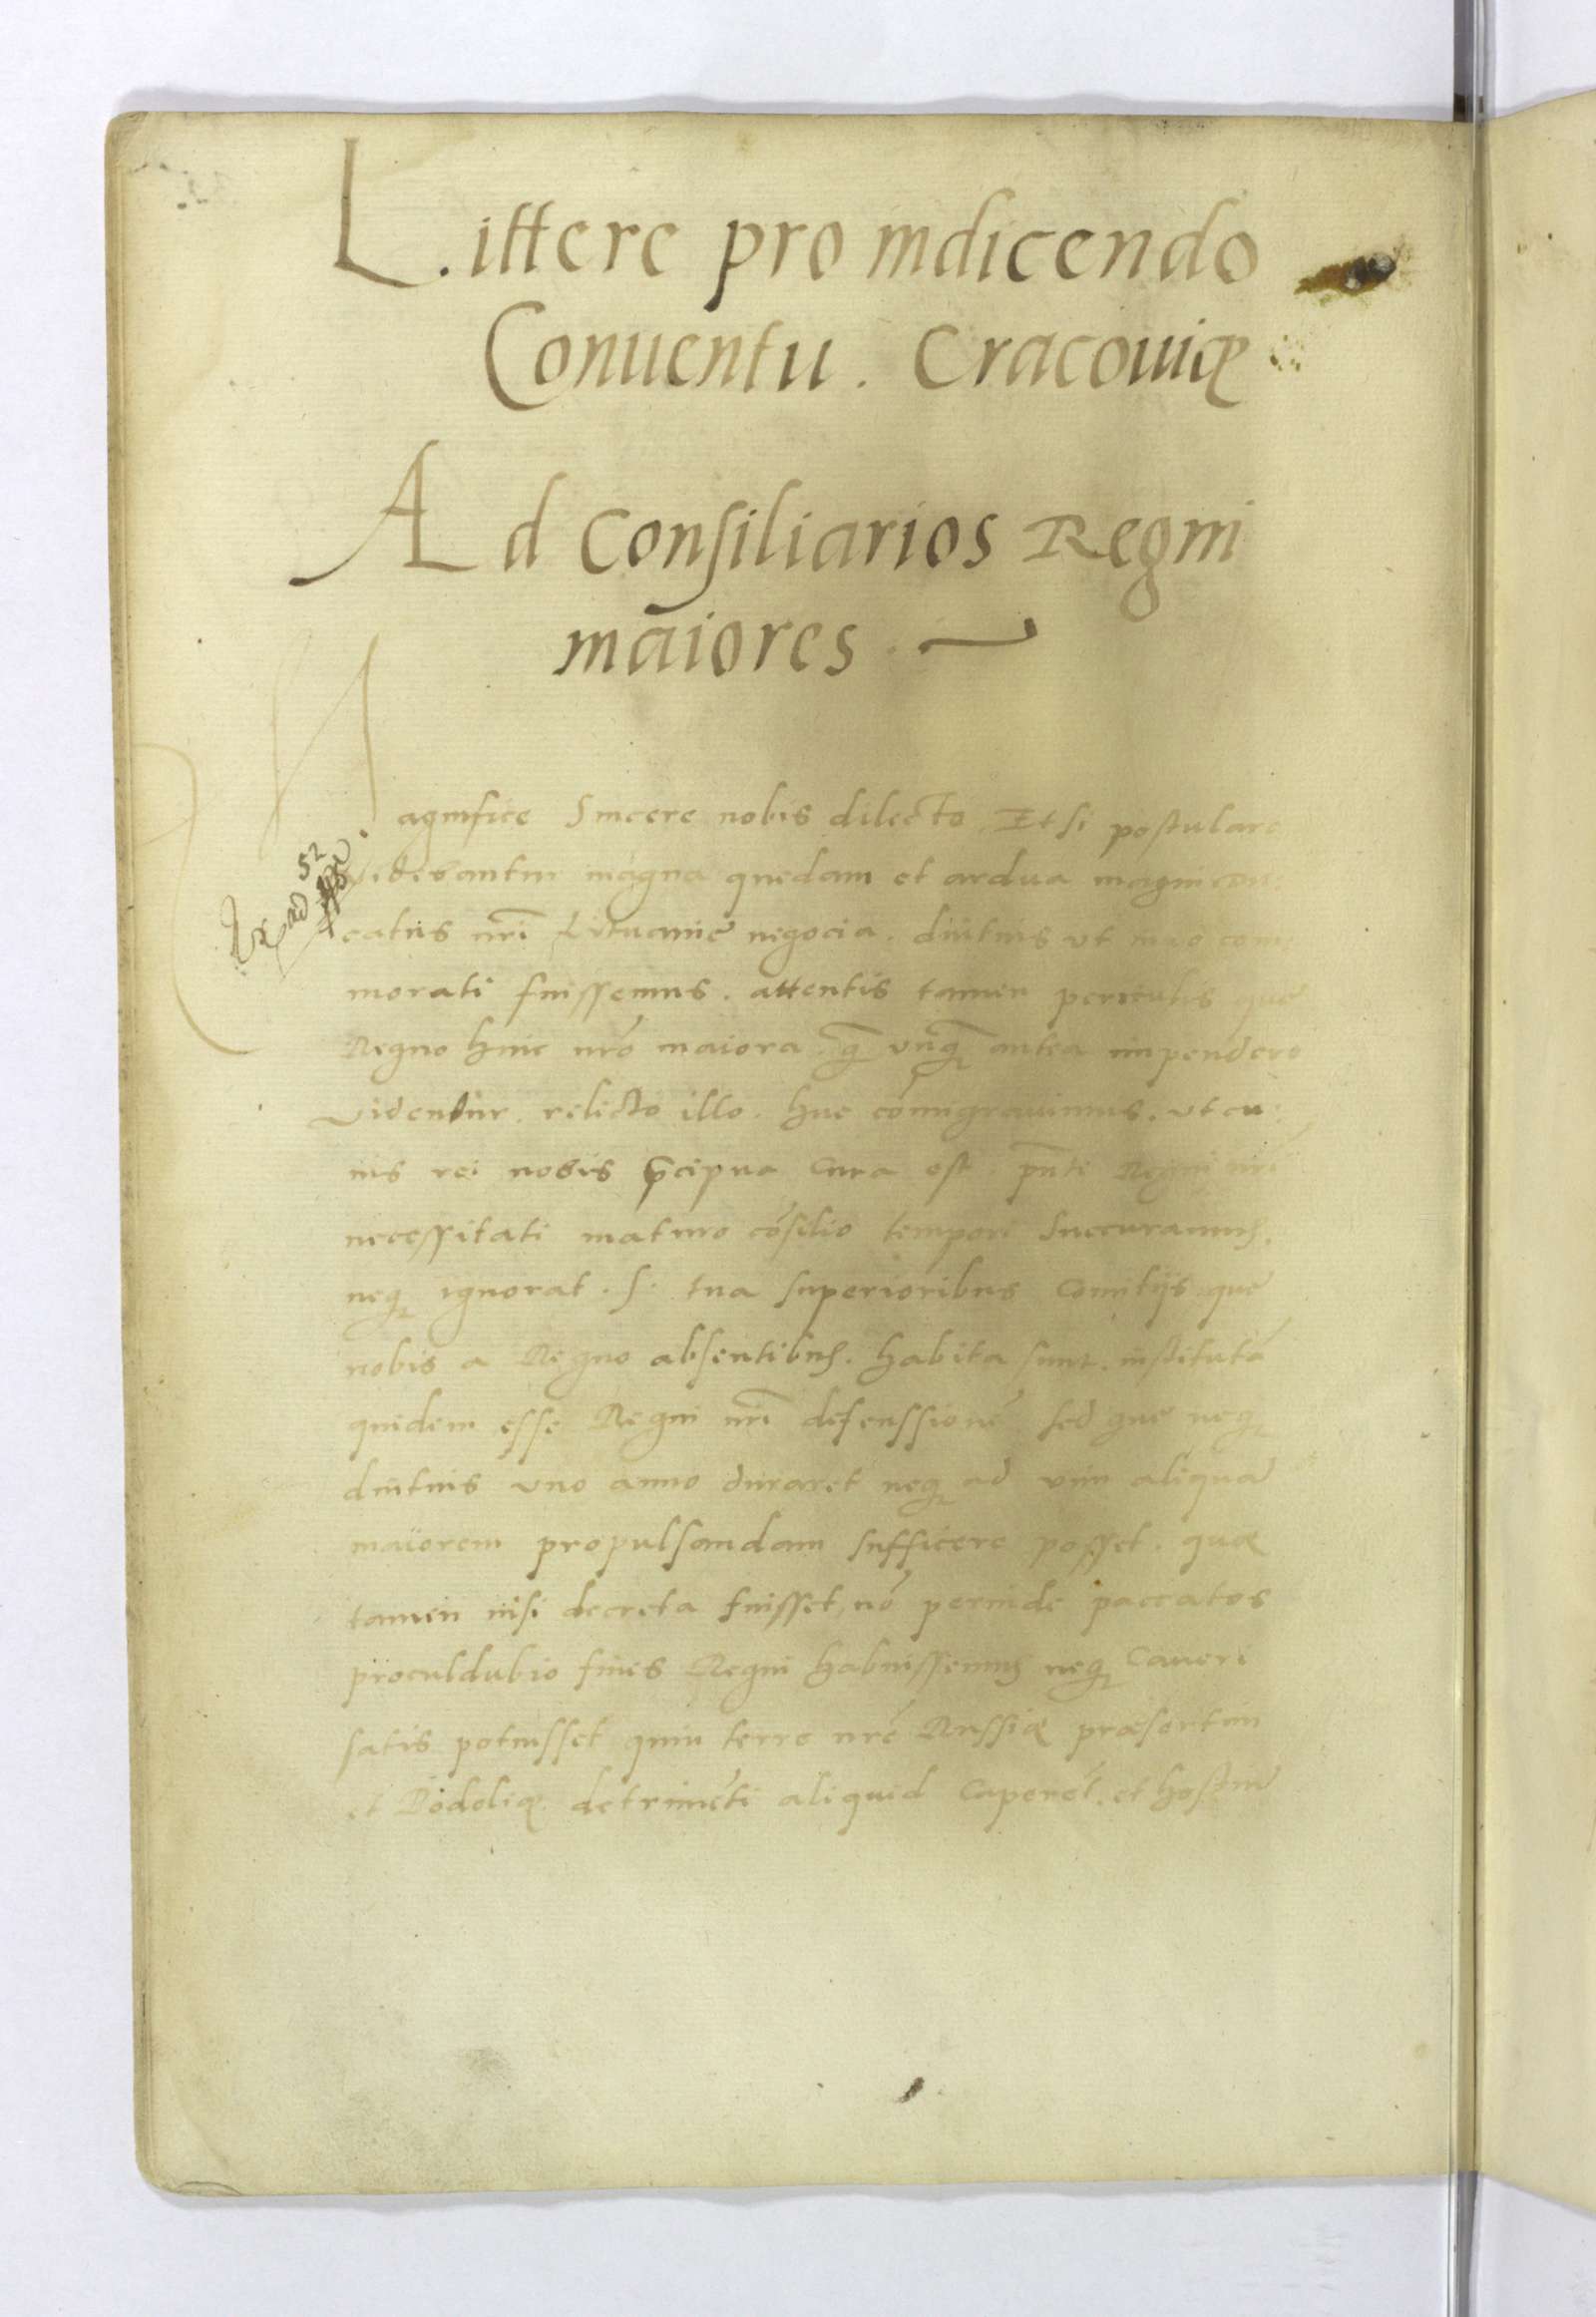 Littere pro indicendo
Conuentu. Cracouię
Ad Consiliarios Regni
maiores.
Magnifice Sincere nobis dilecte. Et si postulare
videbantur magna quedam et ardua magni du:
52
catus nr̄i Lituanie negocia. diutius vt in eo com:
morati fuissemus. attentis tamen periculis que
Regno huic nr̄o maiora. q̄ vnq̄ antea impendere
videntur. relicto illo. huc cōmigrauimus. vt cu:
ius rei nobis p̄cipua cura est p̄nti Regni nr̄i
necessitati maturo cōsilio tempori succuramus.
neq; ignorat. S. tua superioribus Comitijs que
nobis a Regno absentibus. habita sunt. institutā
quidem esse Regni nr̄i defenssionē sed que neq;
diutius vno anno duraret neq; ad vim aliquā
maiorem propulsandam sufficere posset. quę
tamen nisi decreta fuisset, nō perinde paccatos
proculdubio fines Regni habuissemus neq; Caueri
satis potuisset quin terre nr̄e Russię præsertim
et Podolię detrimēti aliquid Caperēt. et hostiū